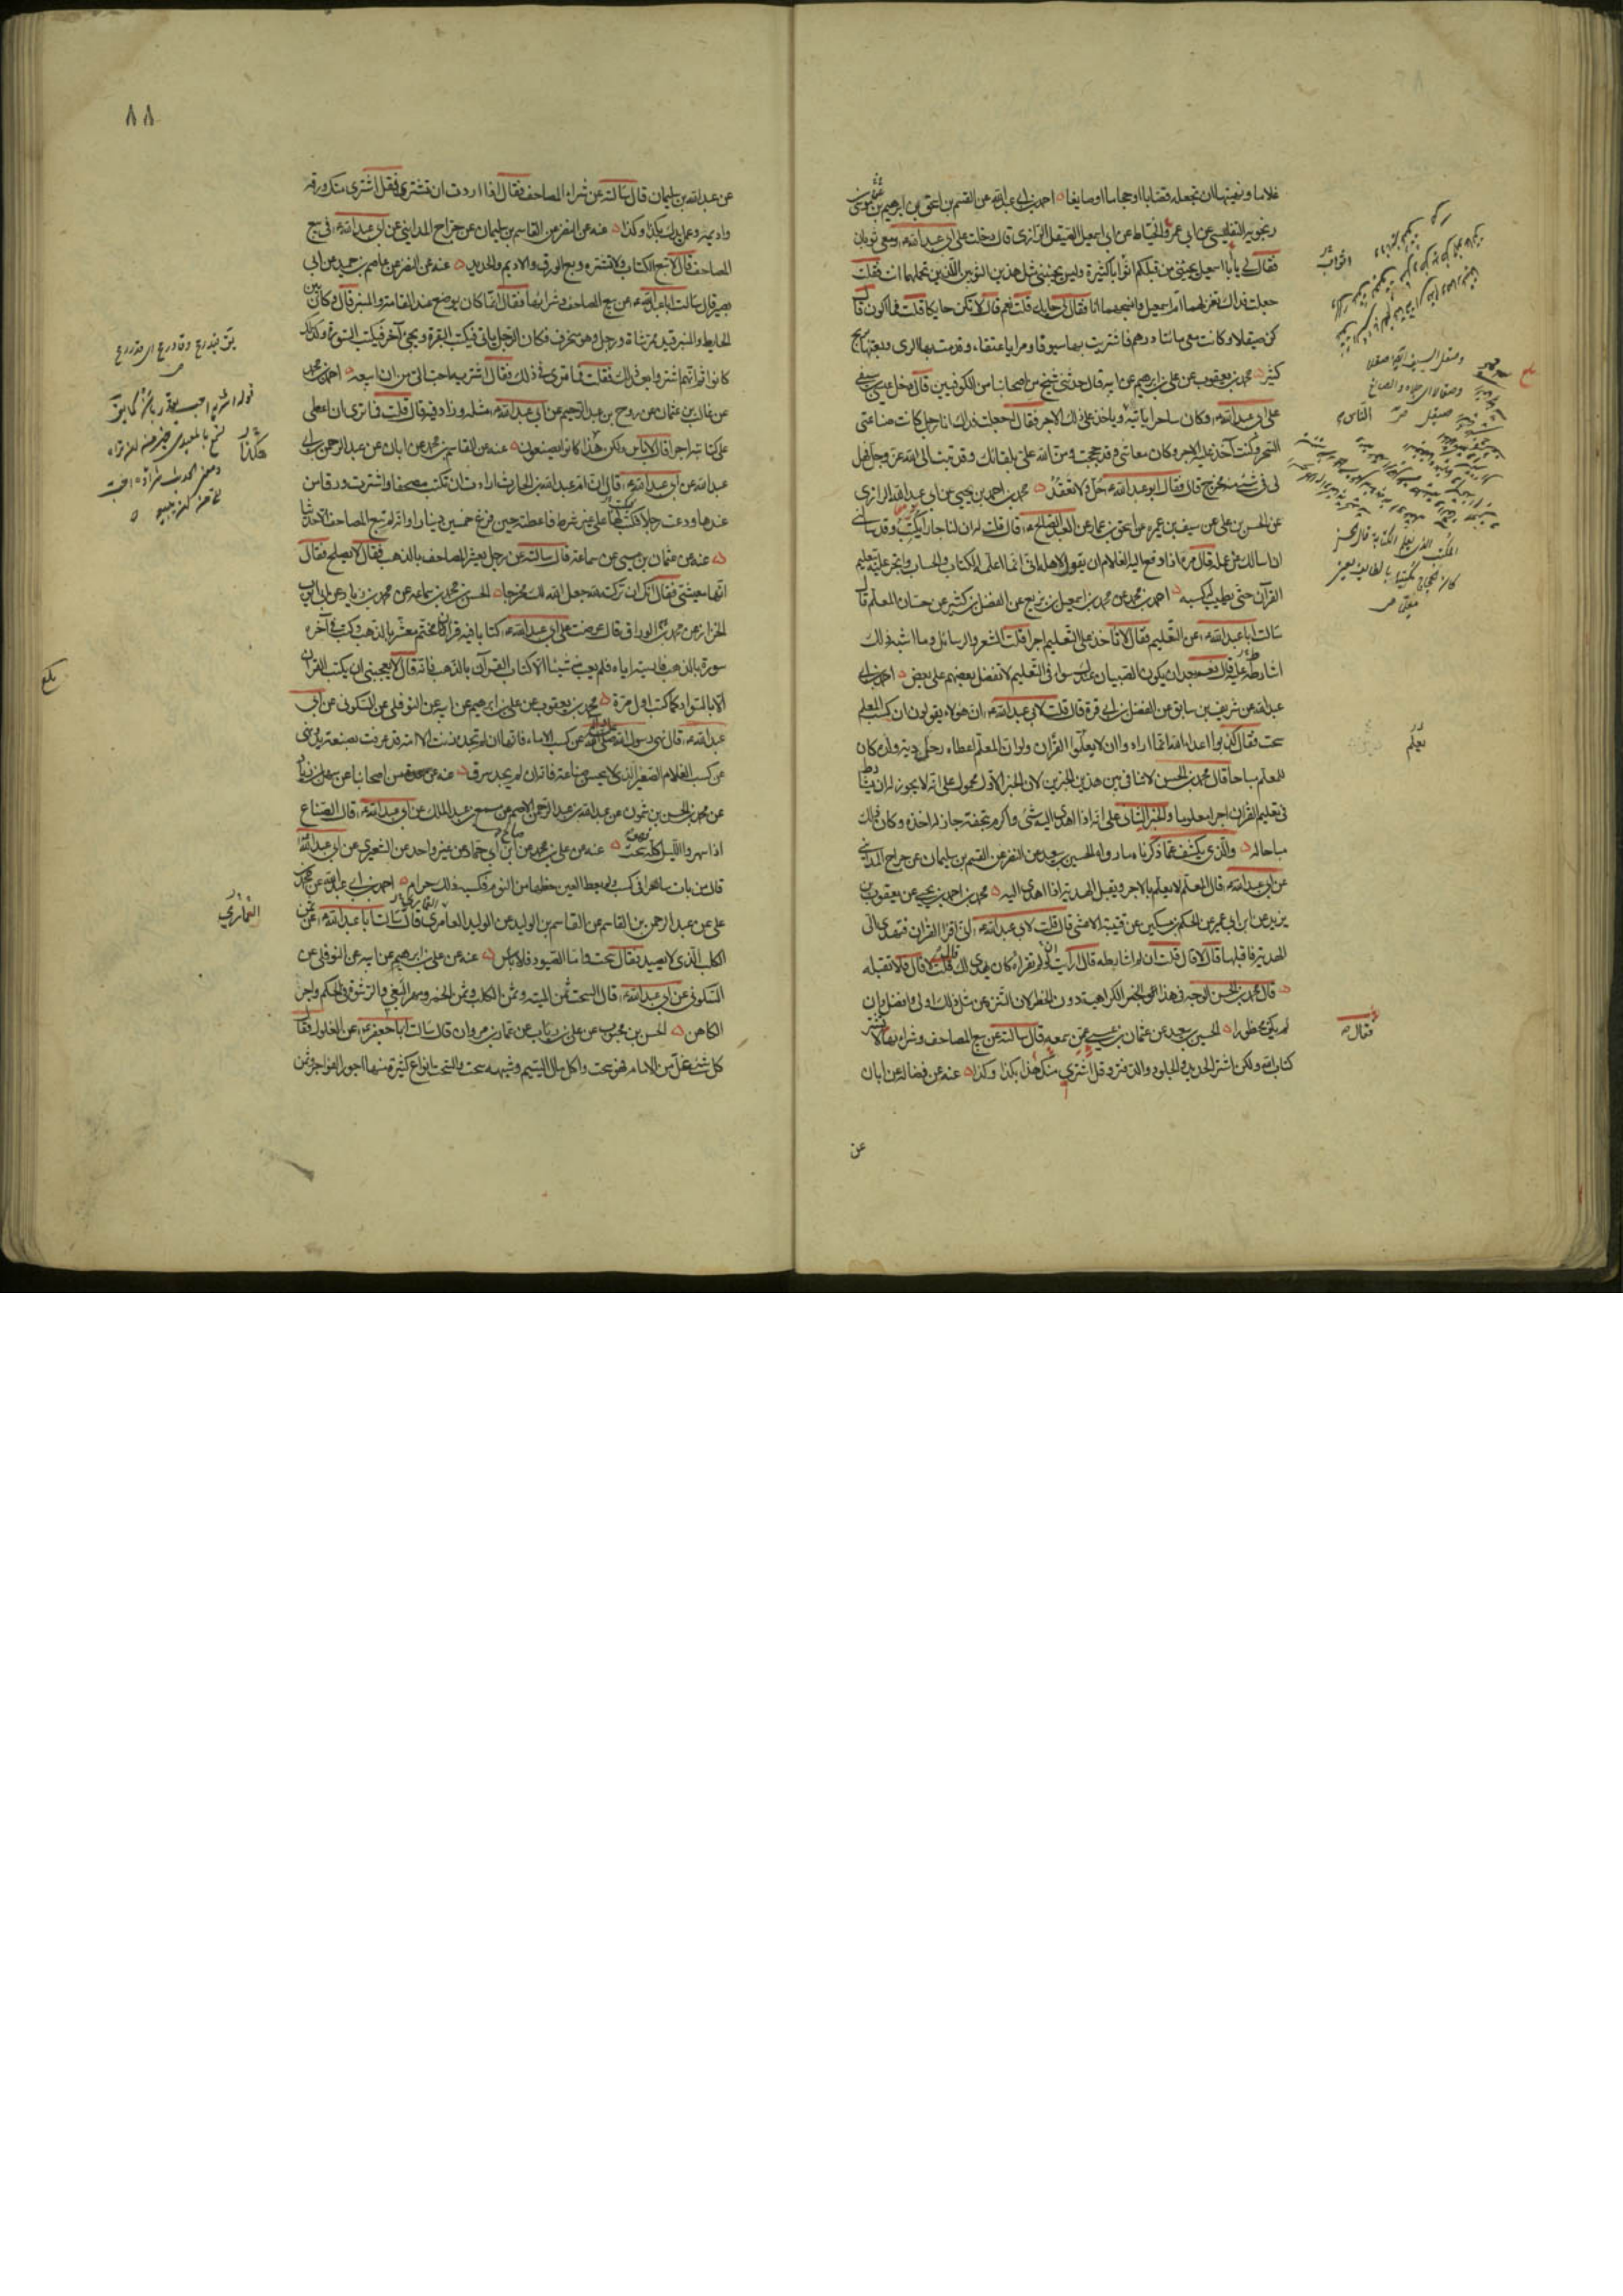 غلاما ونهيتها ان تجعله قصابا او حجاما او صايغا احمد بن ابي عبد الله عن القسم بن اسحق بن ابرهيم بن موسى
بن زنجويه التفليسي عن ابي عمر الخياط عن ابي اسمعيل الصيقل الرازي قال دخلت على ابي عبد الله ومعي ثوبان
فقال لي يا با اسمعيل يجيئني من قبلكم اثواب كثيرة وليس يجيئني مثل هذين الثوبين اللذين تحملهما انت فقلت
جعلت فداك تغزلهما ام اسمعيل وانسجهما انا فقال لي حايك قلت نعم قال لا تكن حايكا قلت فما اكون قال
كن صيقلا وكانت معي مائتا درهم فاشتريت بها سيوفا ومرايا عتقاء وقدمت بها الري وبعتها بربح
كثير محمد بن يعقوب عن علي بن ابرهيم عن ابيه قال حدثني شيخ من اصحابنا من الكوفيين قال دخل عيسى بن سيفي
على ابي عبد الله وكان ساحرا ياتيه وياخذ على ذلك الاجر فقال له جعلت فداك انا رجل كانت صناعتي
السحر وكنت آخذ عليه الاجر وكان معاشي وقد حججت ومن الله علي بلقائك وقد تبت الى الله عز وجل فهل
لي في شئ منه مخرج قال فقال ابو عبد الله حل ولا تعقد محمد بن احمد بن يحيى عن ابي عبد الله الرازي
عن الحسن بن علي عن سيف بن عميرة عن اسحق بن عمار عن العبد الصالح قال قلت له ان لنا جارا يكتب وقد سالني
ان اسالك عن عمله قال مره اذا دفع اليه الغلام ان يقول لاهله اني انما اعلمه الكتاب والحساب واتجر عليه بتعليم
القرآن حتى يطيب له كسبه احمد بن محمد عن محمد بن اسمعيل بن بزيع عن الفضل بن كثير عن حسان المعلم قال
سالت ابا عبد الله عن التعليم فقال لا تاخذ على التعليم اجرا قلت الشعر والرسائل وما اشبه ذلك
اشارط عليه قال نعم بعد ان يكون الصبيان عندك سواء في التعليم لا تفضل بعضهم على بعض احمد بن ابي
عبد الله عن شريف بن سابق عن الفضل بن ابي قرة قال قلت لابي عبد الله ان هؤلاء يقولون ان كسب المعلم
سحت فقال كذبوا اعداء الله انما ارادوا ان لا يعلموا القرآن ولو ان المعلم اعطاه رجل دية ولده كان
للمعلم مباحا قال محمد بن الحسن لا تنافي بين هذين الخبرين لان الخبر الاول محمول على انه لا يجوز له ان يشارط
في تعليم القرآن اجرا معلوما والخبر الثاني على انه اذا اهدي اليه شئ واكرم بتحفة جاز له اخذه وكان ذلك
مباحا له والذي يكشف عما ذكرناه ما رواه الحسين بن سعيد عن النضر عن القسم بن سليمان عن جراح المدايني
عن ابي عبد الله قال المعلم لا يعلم بالاجر ويقبل الهدية اذا اهدي اليه محمد بن احمد بن يحيى عن يعقوب بن
يزيد عن ابن ابي عمير عن الحكم بن مسكين عن قتيبة الاعشى قال قلت لابي عبد الله اني اقرأ القرآن فتهدى الي
الهدية فاقبلها قال لا قال قلت ان لم اشارطه قال ارأيت ان لم تقرأه كان يهدى لك قال قلت لا قال فلا تقبله
قال محمد بن الحسن الوجه في هذا الخبر الكراهية دون الحظر لان التنزه عن مثل ذلك اولى وافضل وان
لم يكن محظورا الحسين بن سعيد عن عثمان بن عيسى عن سمعه قال سالته عن بيع المصاحف وشرائها فقال لا تشتر
كتاب الله ولكن اشتر الحديد والجلود والدفتر وقل اشتري منك هذا بكذا وكذا عنه عن فضالة عن ابان
عن
تعلم
فقال
٨٨
عن عبد الله بن سليمان قال سالته عن شراء المصاحف فقال اذا اردت ان تشتري فقل اشتري منك ورقه
واديمه وعمل يدك بكذا وكذا عنه عن النضر عن القاسم بن سليمان عن جراح المدايني عن ابي عبد الله في بيع
المصاحف قال لا تبع الكتاب ولا تشتره وبع الورق والاديم والحديد عنه عن النضر عن عاصم بن حميد عن ابي
بصير قال سالت ابا عبد الله عن بيع المصاحف وشرائها فقال انما كان يوضع عند القامة والمنبر قال وكان بين
الحايط والمنبر قيد ممر شاة ورجل وهو منحرف فكان الرجل ياتي فيكتب البقرة ويجئ آخر فيكتب السورة وكذلك
كانوا ثم انهم اشتروا بعد ذلك فقلت فما ترى في ذلك فقال اشتريه احب الي من ان ابيعه احمد بن محمد
عن غالب بن عثمان عن روح بن عبد الرحيم عن ابي عبد الله مثله وزاد فيه قال قلت فما ترى ان اعطي
على كتابته اجرا قال لا باس ولكن هكذا كانوا يصنعون عنه عن القاسم بن محمد عن ابان عن عبد الرحمن بن ابي
عبد الله عن ابي عبد الله قال ان ام عبد الله بن الحارث ارادت ان تكتب مصحفا واشترت ورقا من
عندها ودعت رجلا فكتب لها على غير شرط فاعطته حين فرغ خمسين دينارا وانه لم تبع المصاحف الا حديثا
عنه عن عثمان بن عيسى عن سماعة قال سالته عن رجل يعشر المصاحف بالذهب فقال لا يصلح فقال
انها معيشتي فقال انك ان تركته لله جعل الله لك مخرجا الحسن بن محمد بن سماعه عن محمد بن زياد عن ابي ايوب
الخزاز عن محمد الوراق قال عرضت على ابي عبد الله كتابا فيه قرآن مختم معشر بالذهب وكتب في آخره
سورة بالذهب فاريته اياه فلم يعب فيه شيئا الا كتاب القرآن بالذهب فانه قال لا يعجبني ان يكتب القرآن
الا بالسواد كما كتب اول مرة محمد بن يعقوب عن علي بن ابرهيم عن ابيه عن النوفلي عن السكوني عن ابي
عبد الله قال نهى رسول الله صلى الله عليه وآله عن كسب الاماء فانها ان لم تجد زنت الا امة قد عرفت بصنعة يد ونهى
عن كسب الغلام الصغير الذي لا يحسن صناعة فانه ان لم يجد سرق عنه عن عدة من اصحابنا عن سهل بن زياد
عن محمد بن الحسن بن شمون عن عبد الله بن عبد الرحمن الاصم عن مسمع بن عبد الملك عن ابي عبد الله قال الصناع
اذا سهروا الليل كله فهو سحت عنه عن علي بن محمد عن ابن ابي حماد عن غير واحد عن الشعيري عن ابي عبد الله
قال من بات ساهرا في كسب ولم يعط العين حظها من النوم فكسبه ذلك حرام احمد بن ابي عبد الله عن محمد بن
علي عن عبد الرحمن بن القاسم عن القاسم بن الوليد عن الوليد العامري قال سالت ابا عبد الله عن ثمن
الكلب الذي لا يصيد فقال سحت واما الصيود فلا باس عنه عن علي بن ابرهيم عن ابيه عن النوفلي عن
السكوني عن ابي عبد الله قال السحت ثمن الميتة وثمن الكلب وثمن الخمر ومهر البغي والرشوة في الحكم واجر
الكاهن الحسن بن محبوب عن علي بن رئاب عن عمار بن مروان قال سالت ابا جعفر عن الغلول فقال
كل شئ غل من الامام فهو سحت واكل مال اليتيم وشبهه سحت والسحت انواع كثيرة منها اجور الفواجر وثمن
هكذا
بلغ